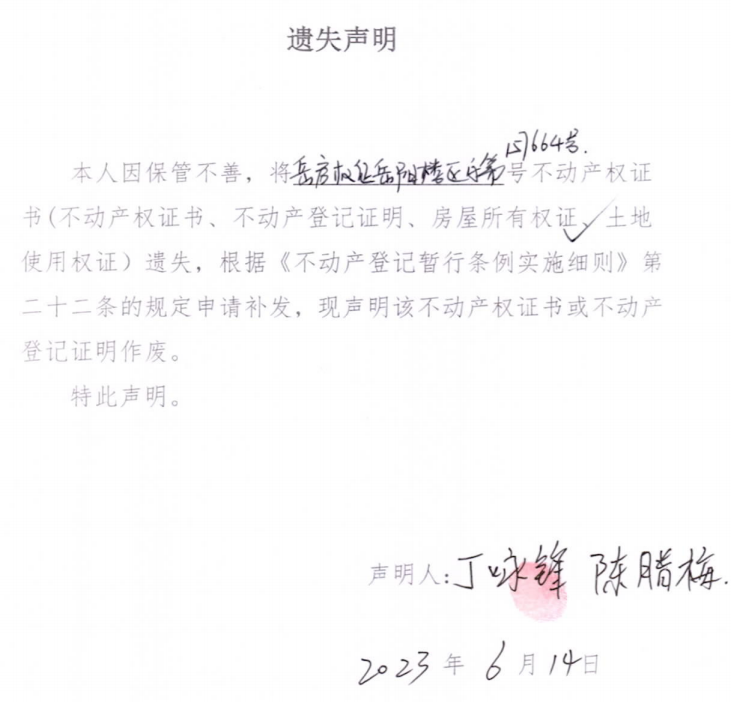 遗失声明
157664号.
本人因保管不善，将岳房权证岳阳楼区字第号不动产权证
书(不动产权证书、不动产登记证明、房屋所有权证、✓土地
使用权证）遗失，根据《不动产登记暂行条例实施细则》第
二十二条的规定申请补发，现声明该不动产权证书或不动产
登记证明作废。
特此声明。
声明人：丁咏锋 陈腊梅.
2023年6月14日